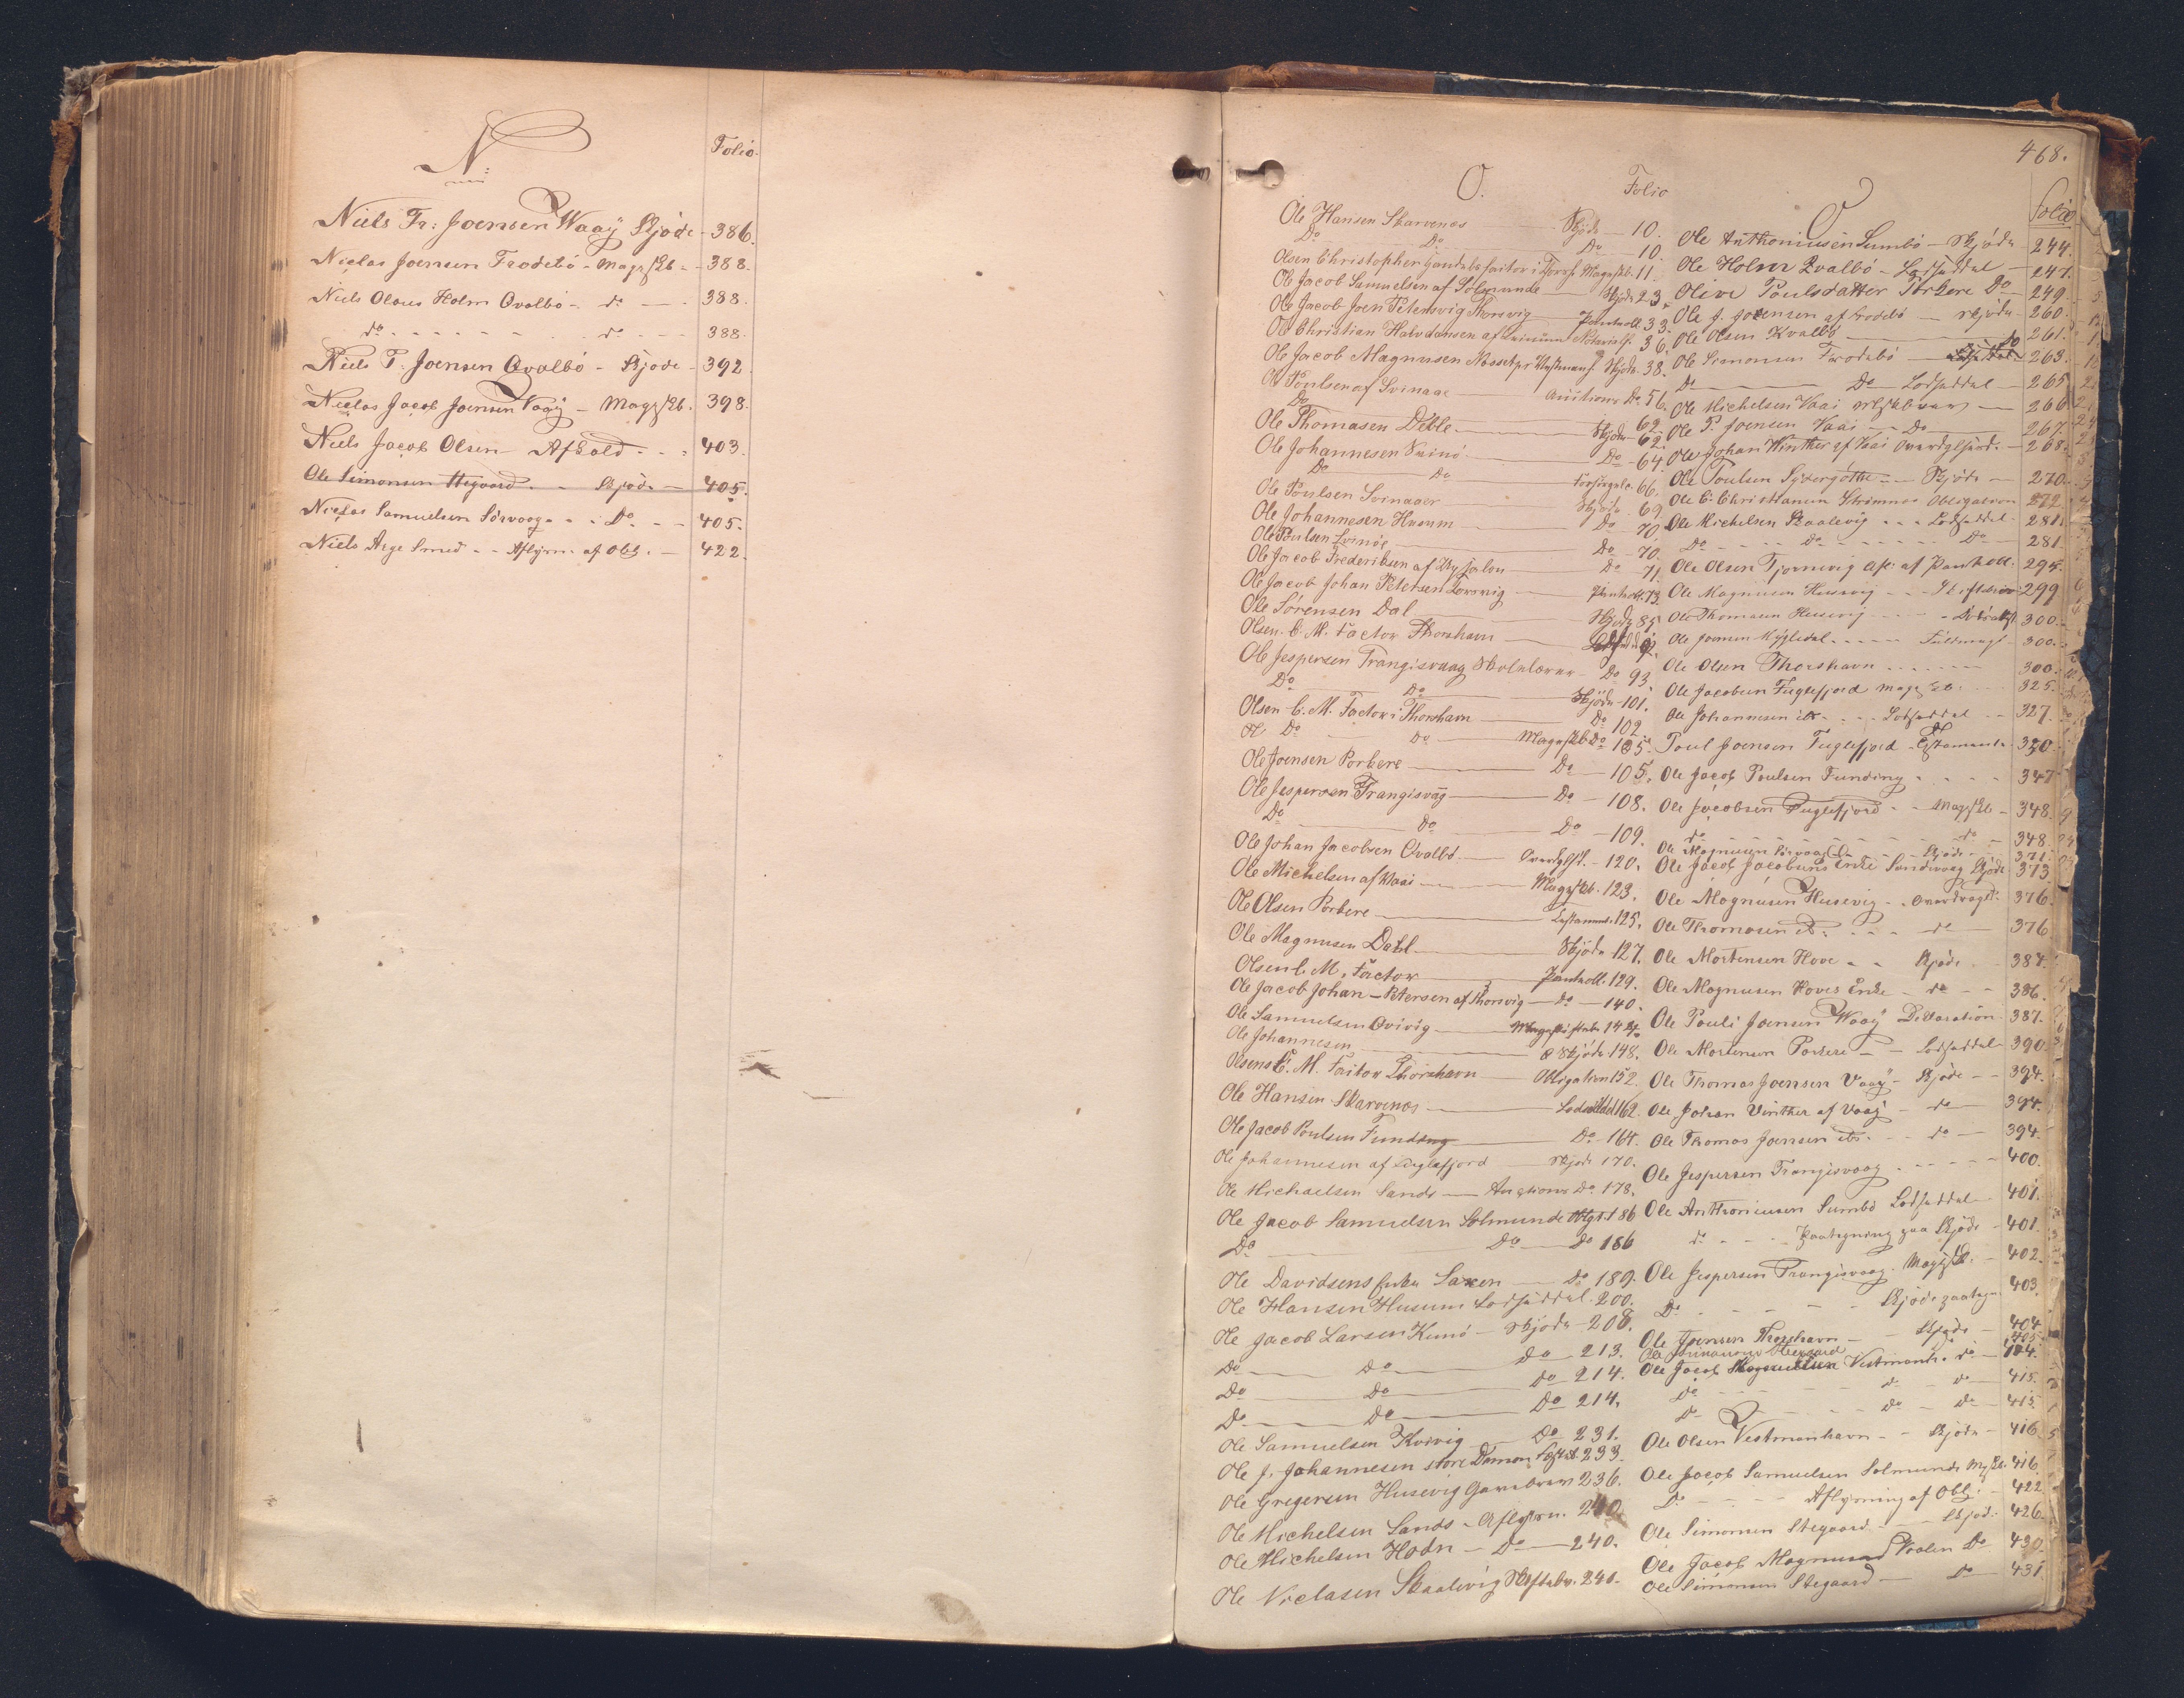 N
Folio.
Niels Fr: Joensen Waaÿ Skjöde - 386.
Niclas Joensen Frodebö - Magesk. - 388.
Niels Olaus Holm Qvalbö - do - 388.
do - - - do - - 388.
Niels P. Joensen Qvalbö - Skjöde - 392.
Niclas Jacob Joensen Vaaÿ - Mageskb. 398.
Niels Jacob Olsen - Afkald - - - 403.
Ole Simonsen Stegaard - - Skjöde - 405.
Niclas Samuelsen Sörvaag - - Do - - 405.
Niels Arge Smed - - Aflysn. af Obl. - 422.
468.
O.
Folio
Ole Hansen Skarvenes Skjöde - 10.
Do Do Do 10.
Olsen Christopher Handelsfactor i Torsh. Mageskb. 11.
Ole Jacob Samuelsen af Solmunde Skjöde 23.
Ole Jacob Joen Petersvig Thorsvig Pantobl. 33.
Ole Christian Halvdansen af 36.
Ole Jacob Magnusen Vestmanh. Skjöde 38.
Ole Poulsen af Svinaae Auctions Do 56.
Do 62.
Ole Thomasen Deble Skjöde 62.
Ole Johannesen Svinö Do - 64.
Do Do 66.
Ole Poulsen Svinaaer Skjöde 69
Ole Johannesen Husum Do 70.
Ole Poulsen Svinöe Do - 70.
Ole Jacob Frederiksen af Do 71.
Ole Jacob Johan Petersen Torsvig Pantobl. 73.
Ole Sörensen Dal Skjöde 85.
Olsen C. M. Factor Thorshavn
Ole Jespersen Trangisvaag Skolelærer - Do 93.
Do Do Skjöde - 101.
Olsen C. M. Factor i Thorshavn Do 102.
Do Do Mageskb Do 105.
Ole Joensen Porkere Do - 105.
Ole Jespersen Trangisvåg Do - 108.
Do Do Do - 109.
Ole Johan Jacobsen Qvalbö - 120.
Ole Michelsen af Waai Mageskb. 123.
Ole Olsen Porkere Testamnt. 125.
Ole Magnusen Dahl Skjöde 127.
Olsen C. M. Factor Pantobl. 129.
Ole Jacob Johan - Petersen af Thorsvig - do - 140.
Ole Samuelsen Qvivig
Ole Johannesen Skjöde 148.
Olsens C. M. Factor Thorshavn Obligation 152.
Ole Hansen Skarvenes Lodseddel 162.
Ole Jacob Poulsen Funding Do 164.
Ole Johannesen af Fuglefjord Skjöde 170.
Ole Michaelsen Sands - Auctions Do 178.
Ole Jacob Samuelsen Solmunde Oblgt. 186
Do Do Do 186
Ole Davidsens Enke Saxen Do 189.
Ole Hansen Husum Lodseddel - 200.
Ole Jacob Larsen Kunö - Skjöde - 208.
Do Do Do 213.
Do Do Do 214.
Do Do Do 214.
Ole Samuelsen Kvivig Do 231.
Ole J. Johannesen store Dimon Fæstebr. 233.
Ole Gregersen Husevig Gavebrev 236.
Ole Michelsen Sands - Aflysn. 240.
Ole Michelsen Hodn - Do - 240.
Ole Niclasen Skaalevig Skiftebr. 240.
O
Folio
Ole Anthoniusen Sumbö - Skjöde - 244.
Ole Holm Qvalbö - Lodseddel - 247.
Olive Poulsdatter Porkere Do 249.
Ole J. Joensen af Frodebö - Skjöde - 260.
Ole Olsen Kvalbö Do 261.
Ole Simonsen Frodebö - 263.
Do Do Lodseddel - 265.
Ole Michelsen Vaai - 266.
Ole P. Joensen Vaai - Do 267.
Ole Johan Winther af Vaai - 268.
Ole Poulsen Sydergöthe - Skjöde - 270.
Ole C. Christiansen Obligation 272.
Ole Michelsen Skaalevig - - - Lodseddel 281.
Do - - - Do - - - Do 281.
Ole Olsen Tjörnevig Afl. af Pantobl. 295.
Ole Magnusen Husevig - - 299
Ole Thomasen Husevig - - 300.
Ole Joensen - - - Fuldmagt - 300.
Ole Olsen Thorshavn - - - 300.
Ole Jacobsen Fuglefjord Mageskb. 325.
Ole Johannesen ibd. - - Lodseddel - - 327.
Poul Joensen Fuglefjord Testamente
Ole Jacob Poulsen Funding - - - 347
Ole Jacobsen Fuglefjord - - Mageskb - 348.
do - - - do 348
Ole Magnusen Sörvaag - - - Skjöde - 371.
Ole Jacob Jacobsens Enke Sandevaag Skjöde 373
Ole Magnusen Husevig - - Overdragelse 376.
Ole Thomasen ib. - - - do 376
Ole Mortensen Hove - - Skjöde - 384.
Ole Magnusen Hoves Enke - do - - 386.
Ole Pauli Joensen Waaÿ Declaration 387.
Ole Mortensen Porkere - - Lodseddel - 390.
Ole Thomas Joensen Vaaÿ - Skjöde - - 394.
Ole Johan Vinther af Vaaÿ - do 394.
Ole Thomas Joensen ibs. - - do - 394.
Ole Jespersen Trangisvaag - - - 400.
Ole Anthoniusen Sumbö Lodseddel 401.
do - - - Paategning paa Skjöde - 401.
Ole Jespersen Trangisvaag. Mageskb. - 402.
Do - - - - Skjöde paategn. 403.
Ole Joensen Thorshavn - - Skjöde - 404.
Ole Simonsen Stegaard 405.
Ole Jacob Magnussen Vestmanh. do - 404.
Do - - - do - do - 415.
Do - - - - Do - Do - 415.
Ole Olsen Vestmanhavn - - Skjöde - 416.
Ole Jacob Samuelsen Solmunde Mgskb. 416.
Do - - - - Aflysning af Obl. - 422.
Ole Simonsen Stegaard - - Skjöd. 426.
Ole Jacob Magnusen Do 430.
Ole Simonsen Stegaard - Do - 431.